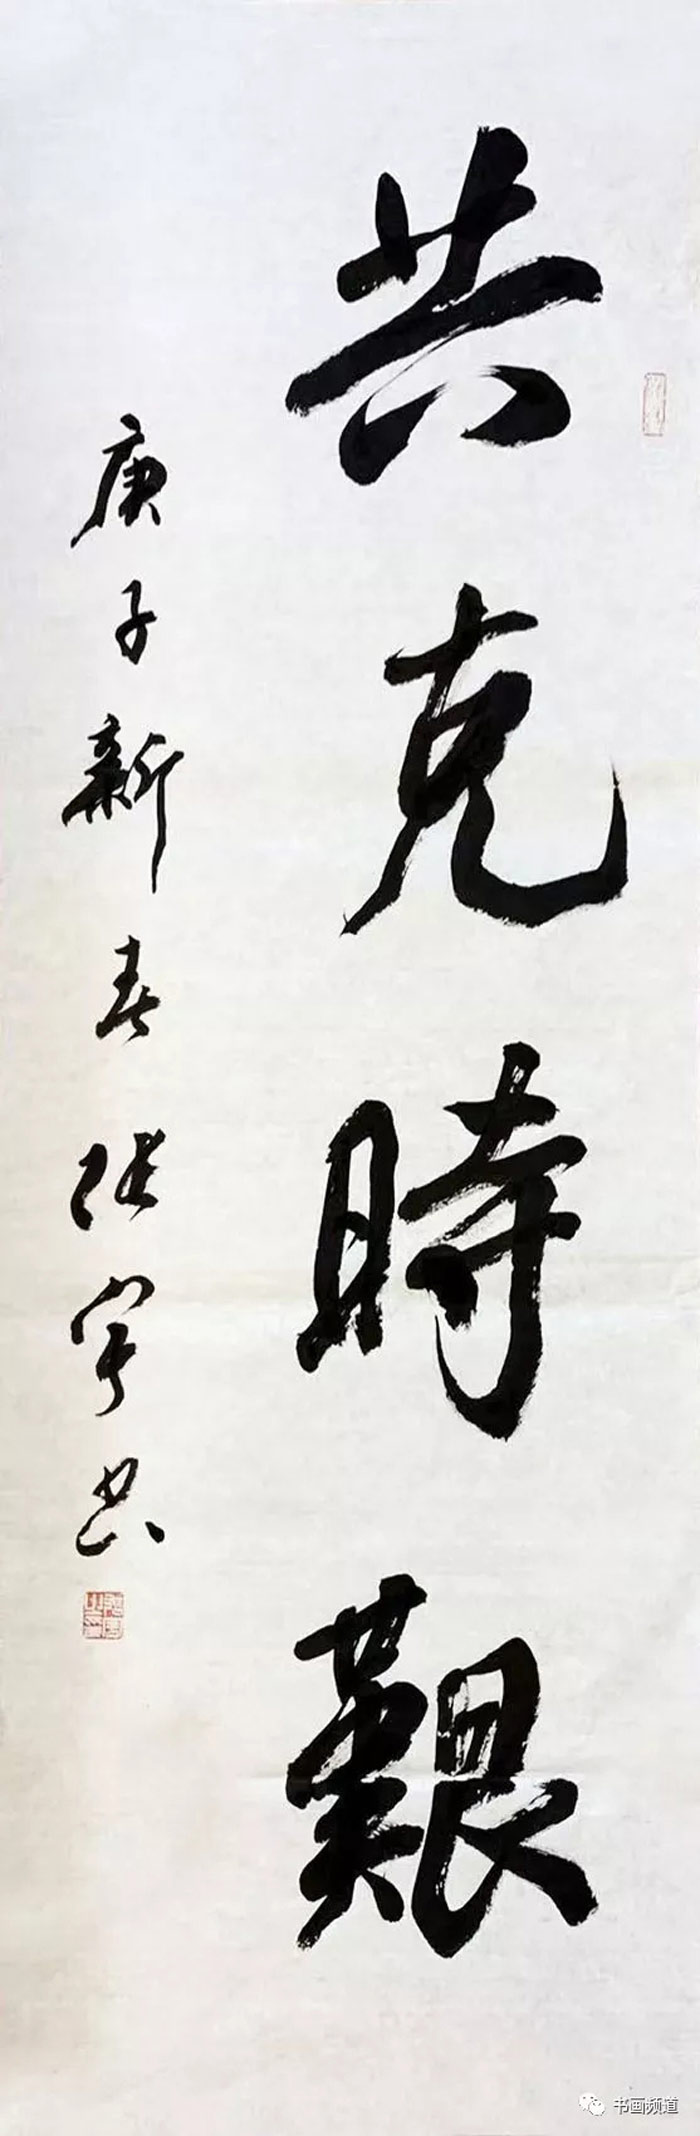 共克時艱
庚子新春张宇书
书画频道